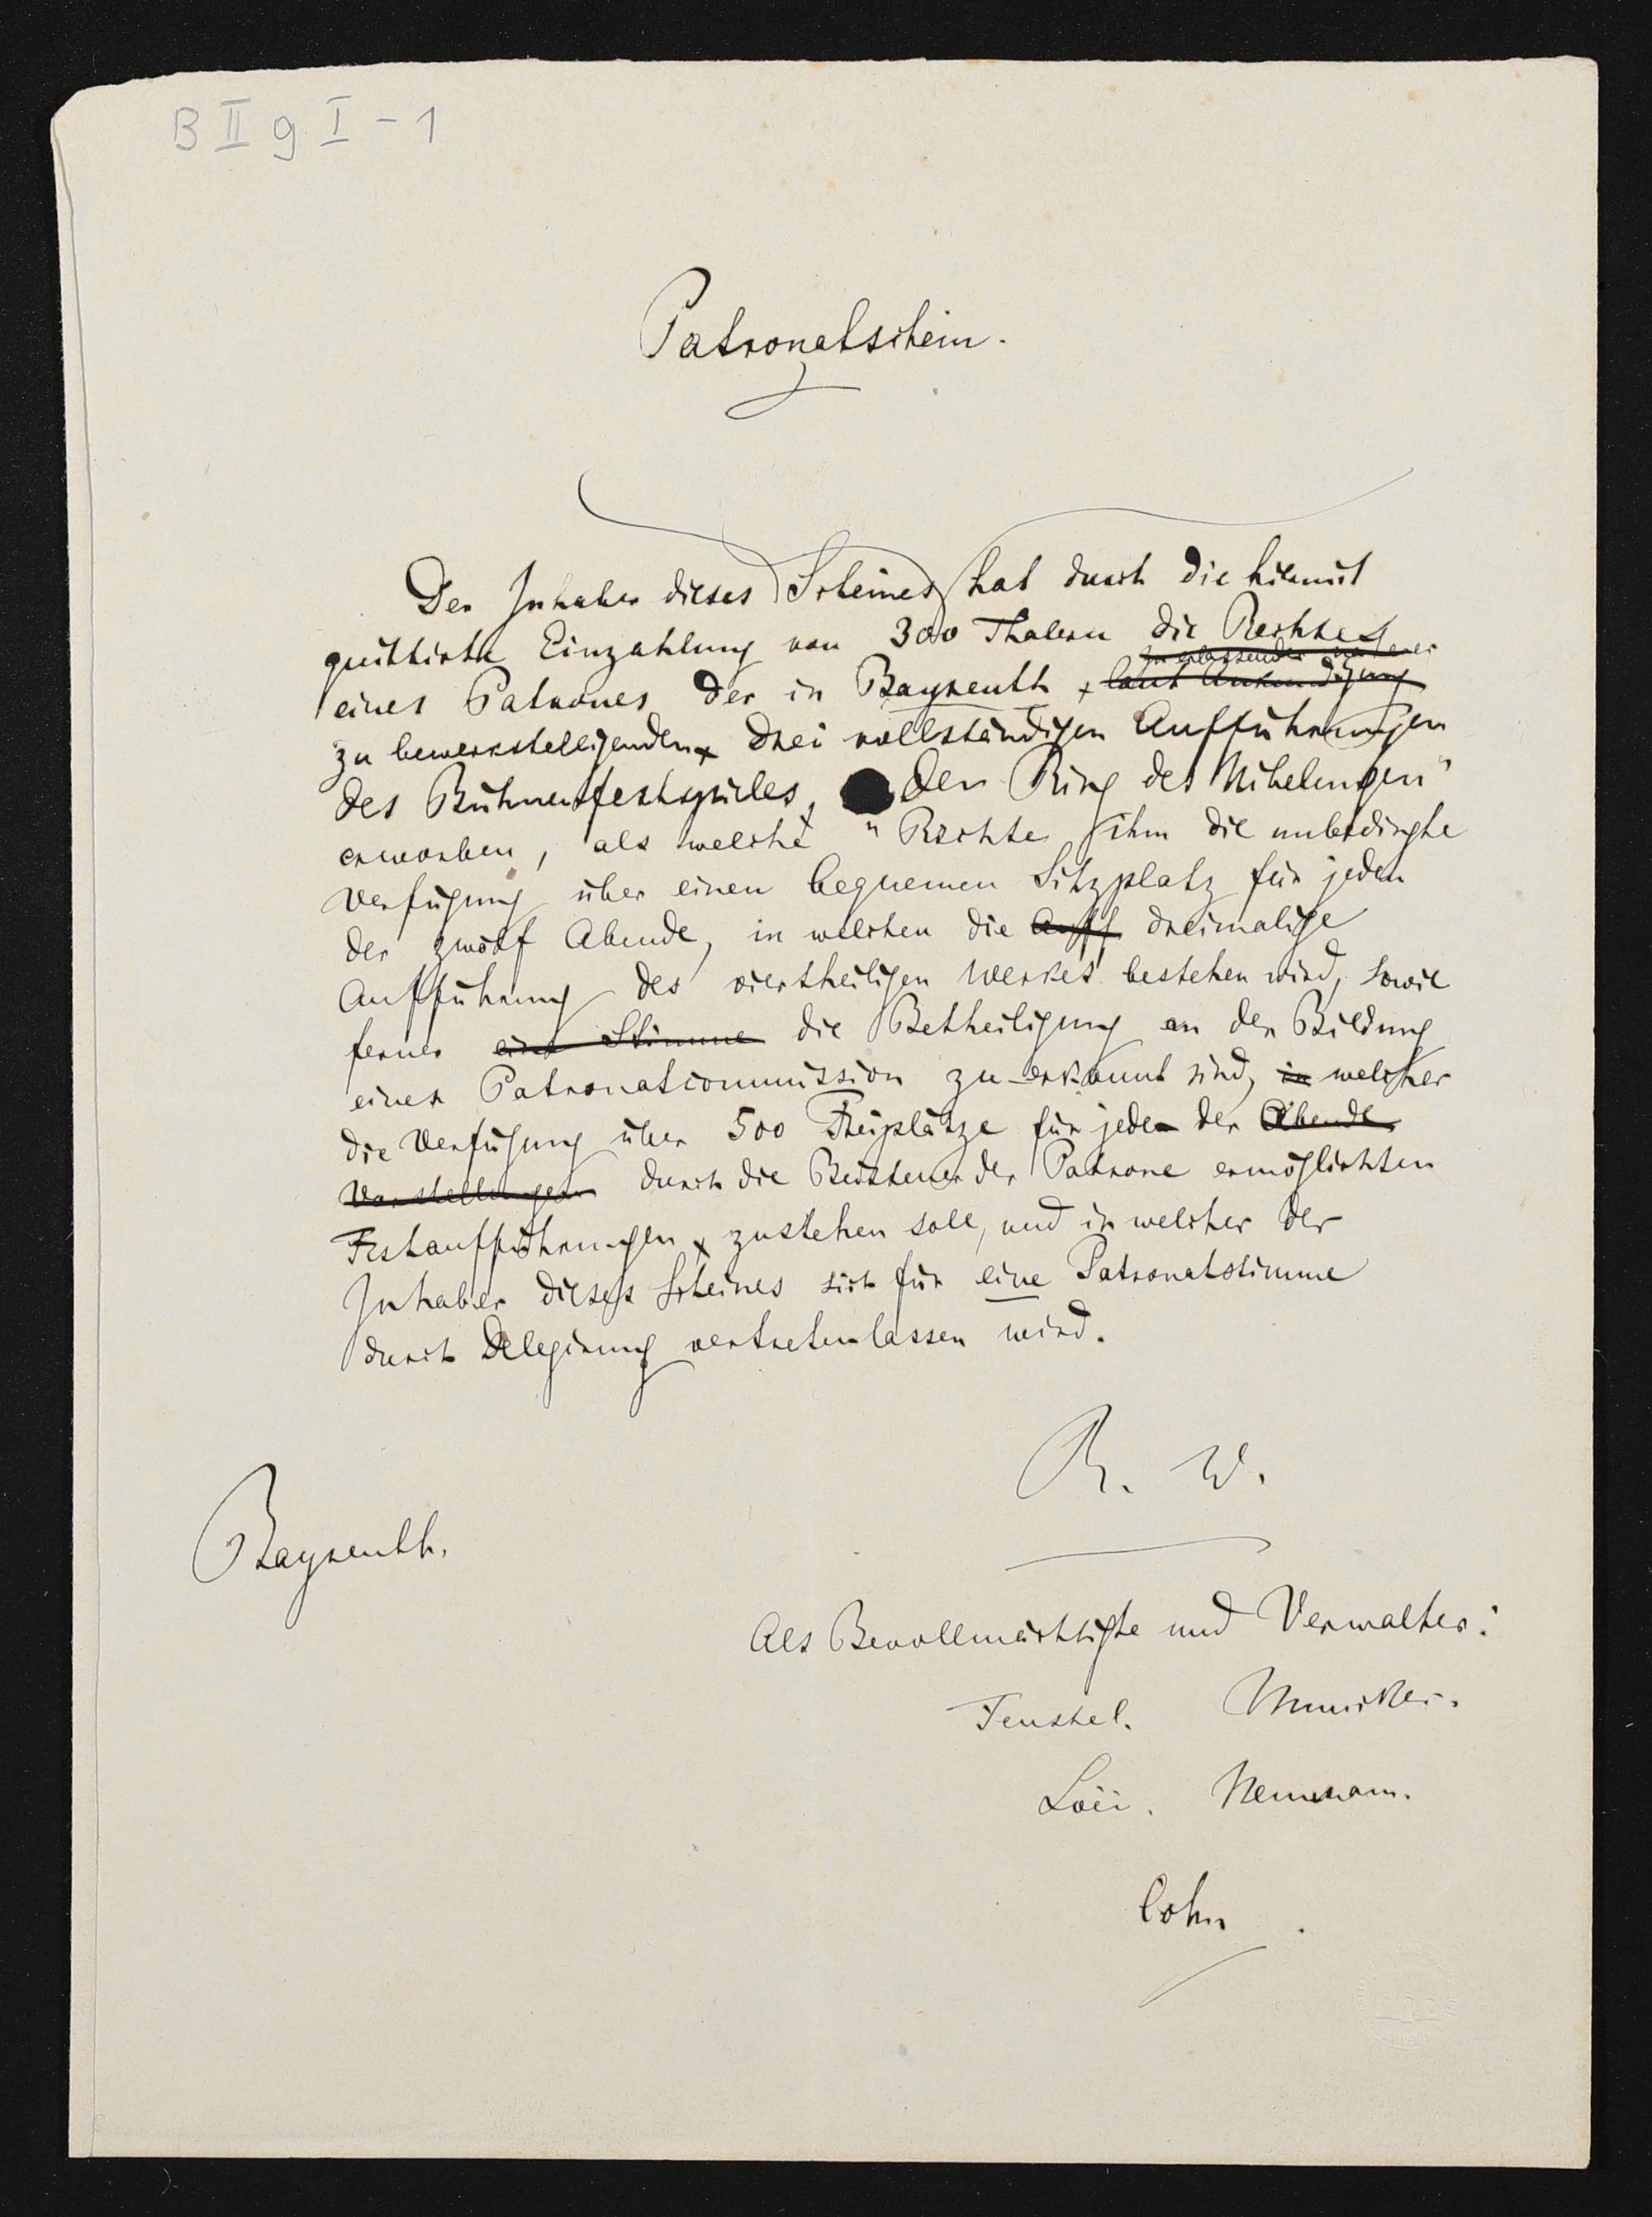 B II g I - 1
Patronatschein.
Der Inhaber dieses Scheines hat durch die hiermit
quittirte Einzahlung von 300 Thalern die Rechte
zu erlassender
eines Patrones der in Bayreuth laut Ankündigung
zu bewerkstelligenden drei vollständigen Aufführungen
des Bühnenfestspieles, "Der Ring des Nibelungen"
erworben, als welche Rechte ihm die unbedingte
Verfügung über einen bequemen Sitzplatz für jeden
der zwölf Abende, in welchen die Auff dreimalige
Aufführung des viertheiligen Werkes bestehen wird, sowie
ferner eine Stimme die Betheiligung an der Bildung
einer Patronatcommission zu erkannt sind, in welcher
die Verfügung über 500 Freiplätze für jede der Abende
Vorstellungen durch die Beisteuer der Patrone ermöglichten
Festaufführungen zustehen soll, und in welcher der
Inhaber dieses Scheines sich für eine Patronatstimme
durch Delegirung vertreten lassen wird.
R. W.
Bayreuth.
Als Bevollmächtigte und Verwalter:
Feustel. Muncker.
Loën. Neumann.
Cohn.